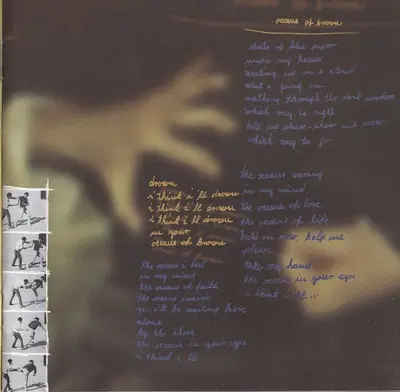 oceans of brown
shells of blue snow
under my hands
waking up in a cloud
what's going on
walking through the dark
which way is right
tell me please - show me now
which way to go
the oceans waving
in my mind
the oceans of love
the oceans of life
hold me now, help me
please
take my hand
the oceans in your eyes
i think i'll...
drown
i think i'll drown
i think i'll drown
i think i'll drown
in your
oceans of brown
the oceans i feel
in my mind
the oceans of faith
the oceans
yes, i'll be waiting here
alone
by the shore
the oceans in your eyes
i think i'll